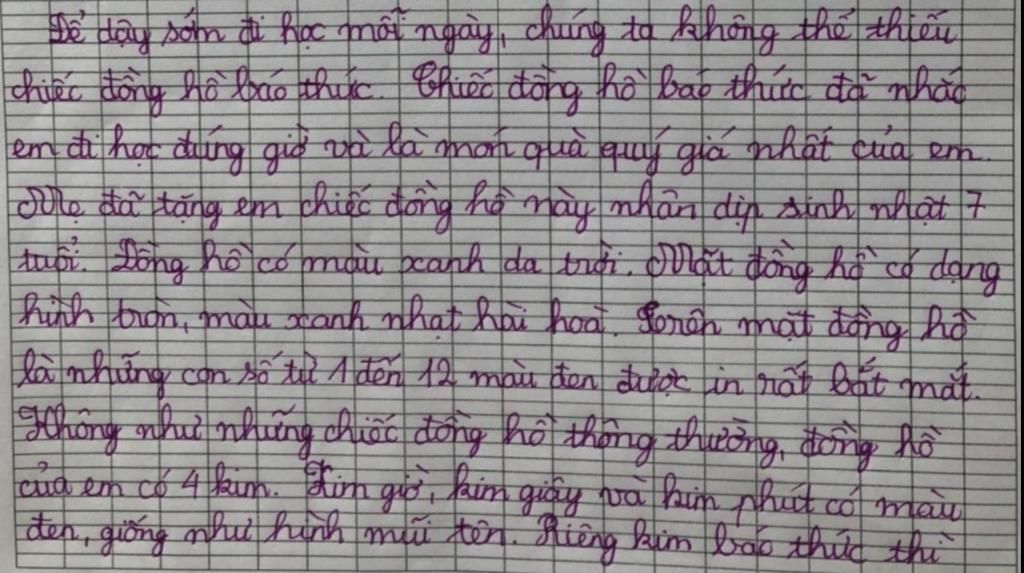 Để dậy sớm đi học mỗi ngày, chúng ta không thể thiếu
chiếc đồng hồ báo thức. Chiếc đồng hồ báo thức đã nhắc
em đi học đúng giờ và là món quà quý giá nhất của em.
Mẹ đã tặng em chiếc đồng hồ này nhân dịp sinh nhật 7
tuổi. Đồng hồ có màu xanh da trời. Mặt đồng hồ có dạng
hình tròn, màu xanh nhạt hài hoà. Trên mặt đồng hồ
là những con số từ 1 đến 12 màu đen được in rất bắt mắt.
Không như những chiếc đồng hồ thông thường, đồng hồ
của em có 4 kim. Kim giờ, kim giây và kim phút có màu
đen, giống như hình mũi tên. Riêng kim báo thức thì